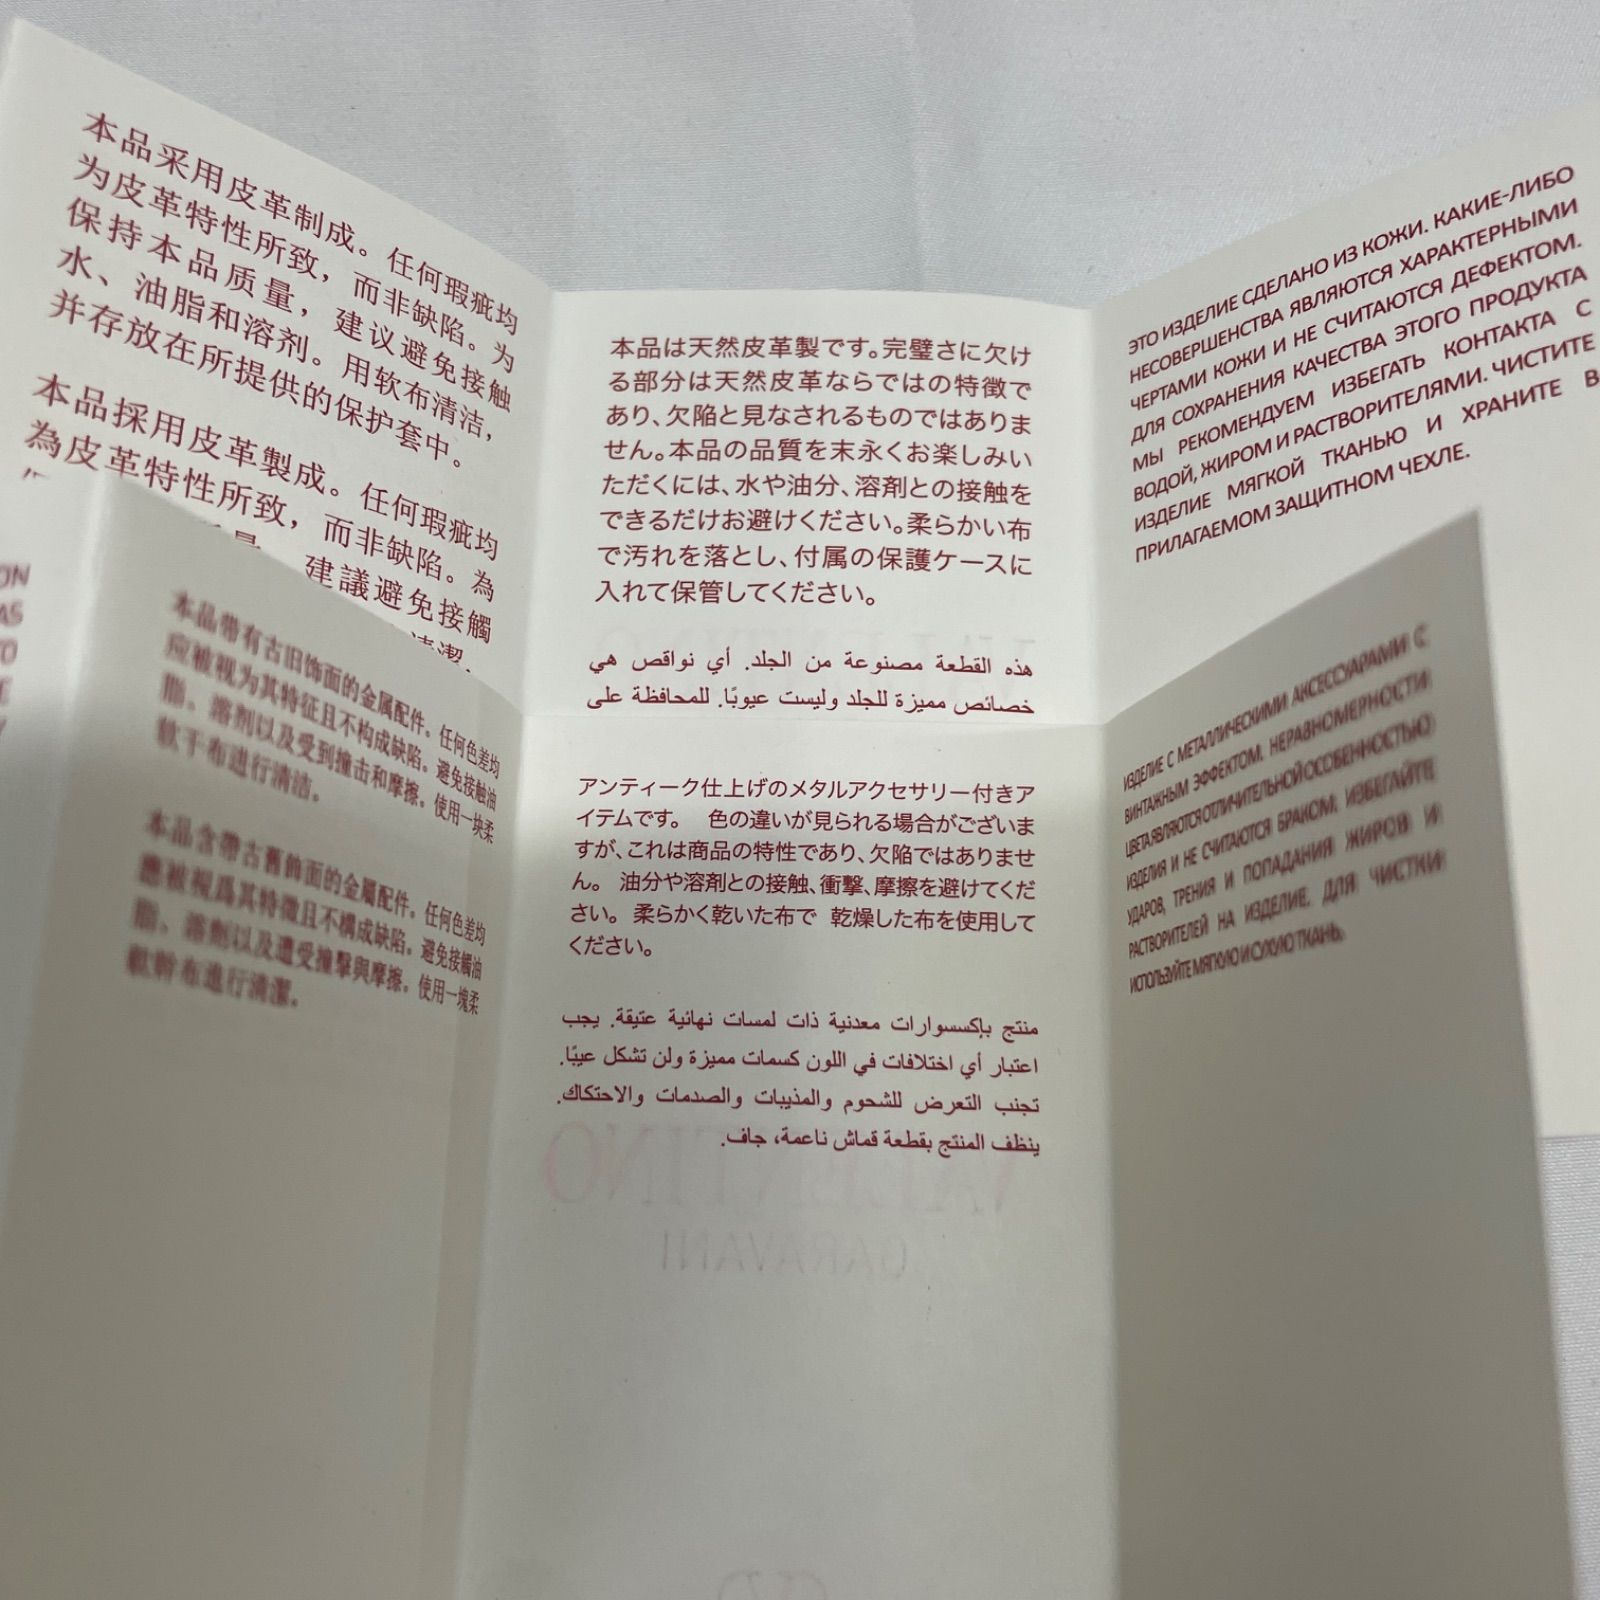 本品采用皮革制成。任何瑕疵均
为皮革特性所致，而非缺陷。为
保持本品质量，建议避免接触
水、油脂和溶剂。用软布清洁，
并存放在所提供的保护套中。
本品採用皮革製成。任何瑕疵均
為皮革特性所致，而非缺陷。為
建議避免接觸
本品は天然皮革製です。完璧さに欠け
る部分は天然皮革ならではの特徴で
あり、欠陥と見なされるものではありま
せん。本品の品質を末永くお楽しみい
ただくには、水や油分、溶剤との接触を
できるだけお避けください。柔らかい布
で汚れを落とし、付属の保護ケースに
入れて保管してください。
هذه القطعة مصنوعة من الجلد. أي نواقص هي
خصائص مميزة للجلد وليست عيوبًا. للمحافظة على
ЭТО ИЗДЕЛИЕ СДЕЛАНО ИЗ КОЖИ. КАКИЕ-ЛИБО
НЕСОВЕРШЕНСТВА ЯВЛЯЮТСЯ ХАРАКТЕРНЫМИ
ЧЕРТАМИ КОЖИ И НЕ СЧИТАЮТСЯ ДЕФЕКТОМ.
ДЛЯ СОХРАНЕНИЯ КАЧЕСТВА ЭТОГО ПРОДУКТА
МЫ РЕКОМЕНДУЕМ ИЗБЕГАТЬ КОНТАКТА С
ВОДОЙ, ЖИРОМ И РАСТВОРИТЕЛЯМИ. ЧИСТИТЕ
ИЗДЕЛИЕ МЯГКОЙ ТКАНЬЮ И ХРАНИТЕ В
ПРИЛАГАЕМОМ ЗАЩИТНОМ ЧЕХЛЕ.
ON
AS
TO
E
本品带有古旧饰面的金属配件。任何色差均
应被视为其特征且不构成缺陷。避免接触油
脂、溶剂以及受到撞击和摩擦。使用一块柔
软干布进行清洁。
本品含帶古舊飾面的金屬配件。任何色差均
應被視爲其特徵且不構成缺陷。避免接觸油
脂、溶劑以及遭受撞擊與摩擦。使用一塊柔
軟幹布進行清潔。
アンティーク仕上げのメタルアクセサリー付きア
イテムです。 色の違いが見られる場合がございま
すが、これは商品の特性であり、欠陥ではありませ
ん。 油分や溶剤との接触、衝撃、摩擦を避けてくだ
さい。 柔らかく乾いた布で 乾燥した布を使用して
ください。
منتج بإكسسوارات معدنية ذات لمسات نهائية عتيقة. يجب
اعتبار أي اختلافات في اللون كسمات مميزة ولن تشكل عيبًا.
تجنب التعرض للشحوم والمذيبات والصدمات والاحتكاك.
ينظف المنتج بقطعة قماش ناعمة، جاف.
ИЗДЕЛИЕ С МЕТАЛЛИЧЕСКИМИ АКСЕССУАРАМИ С
ВИНТАЖНЫМ ЭФФЕКТОМ. НЕРАВНОМЕРНОСТИ
ЦВЕТА ЯВЛЯЮТСЯ ОТЛИЧИТЕЛЬНОЙ ОСОБЕННОСТЬЮ
ИЗДЕЛИЯ И НЕ СЧИТАЮТСЯ БРАКОМ. ИЗБЕГАЙТЕ
УДАРОВ, ТРЕНИЯ И ПОПАДАНИЯ ЖИРОВ И
РАСТВОРИТЕЛЕЙ НА ИЗДЕЛИЕ. ДЛЯ ЧИСТКИ
ИСПОЛЬЗУЙТЕ МЯГКУЮ И СУХУЮ ТКАНЬ.
VALENTINO
GARAVANI